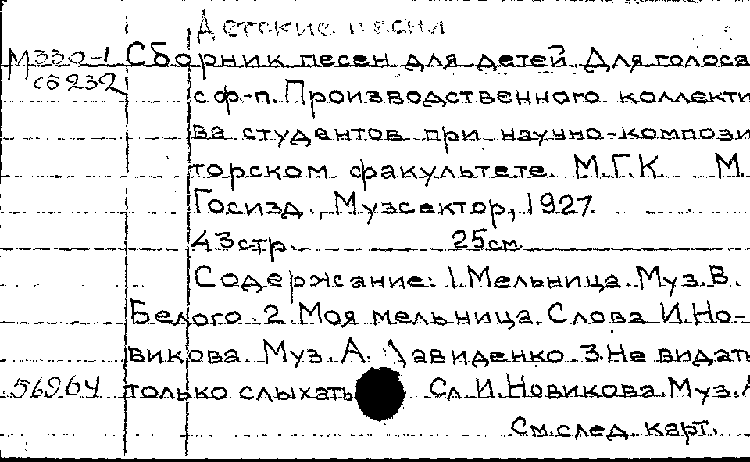 Детские песни
М330-1 Сборник песен для детей Для голоса
сб 232 с ф-п. Производственного коллекти
ва студентов при научно-компози
торском факультете М.Г.К М.
Госизд., Музсектор, 1927.
43 стр. 25см.
Содержание: 1. Мельница. Муз. В.
Белого 2. Моя мельница. Слова И. Но-
викова. Муз. А. Давиденко. 3. Не видать
56964 только слыхать Сл. И. Новикова. Муз.
См. след. карт.